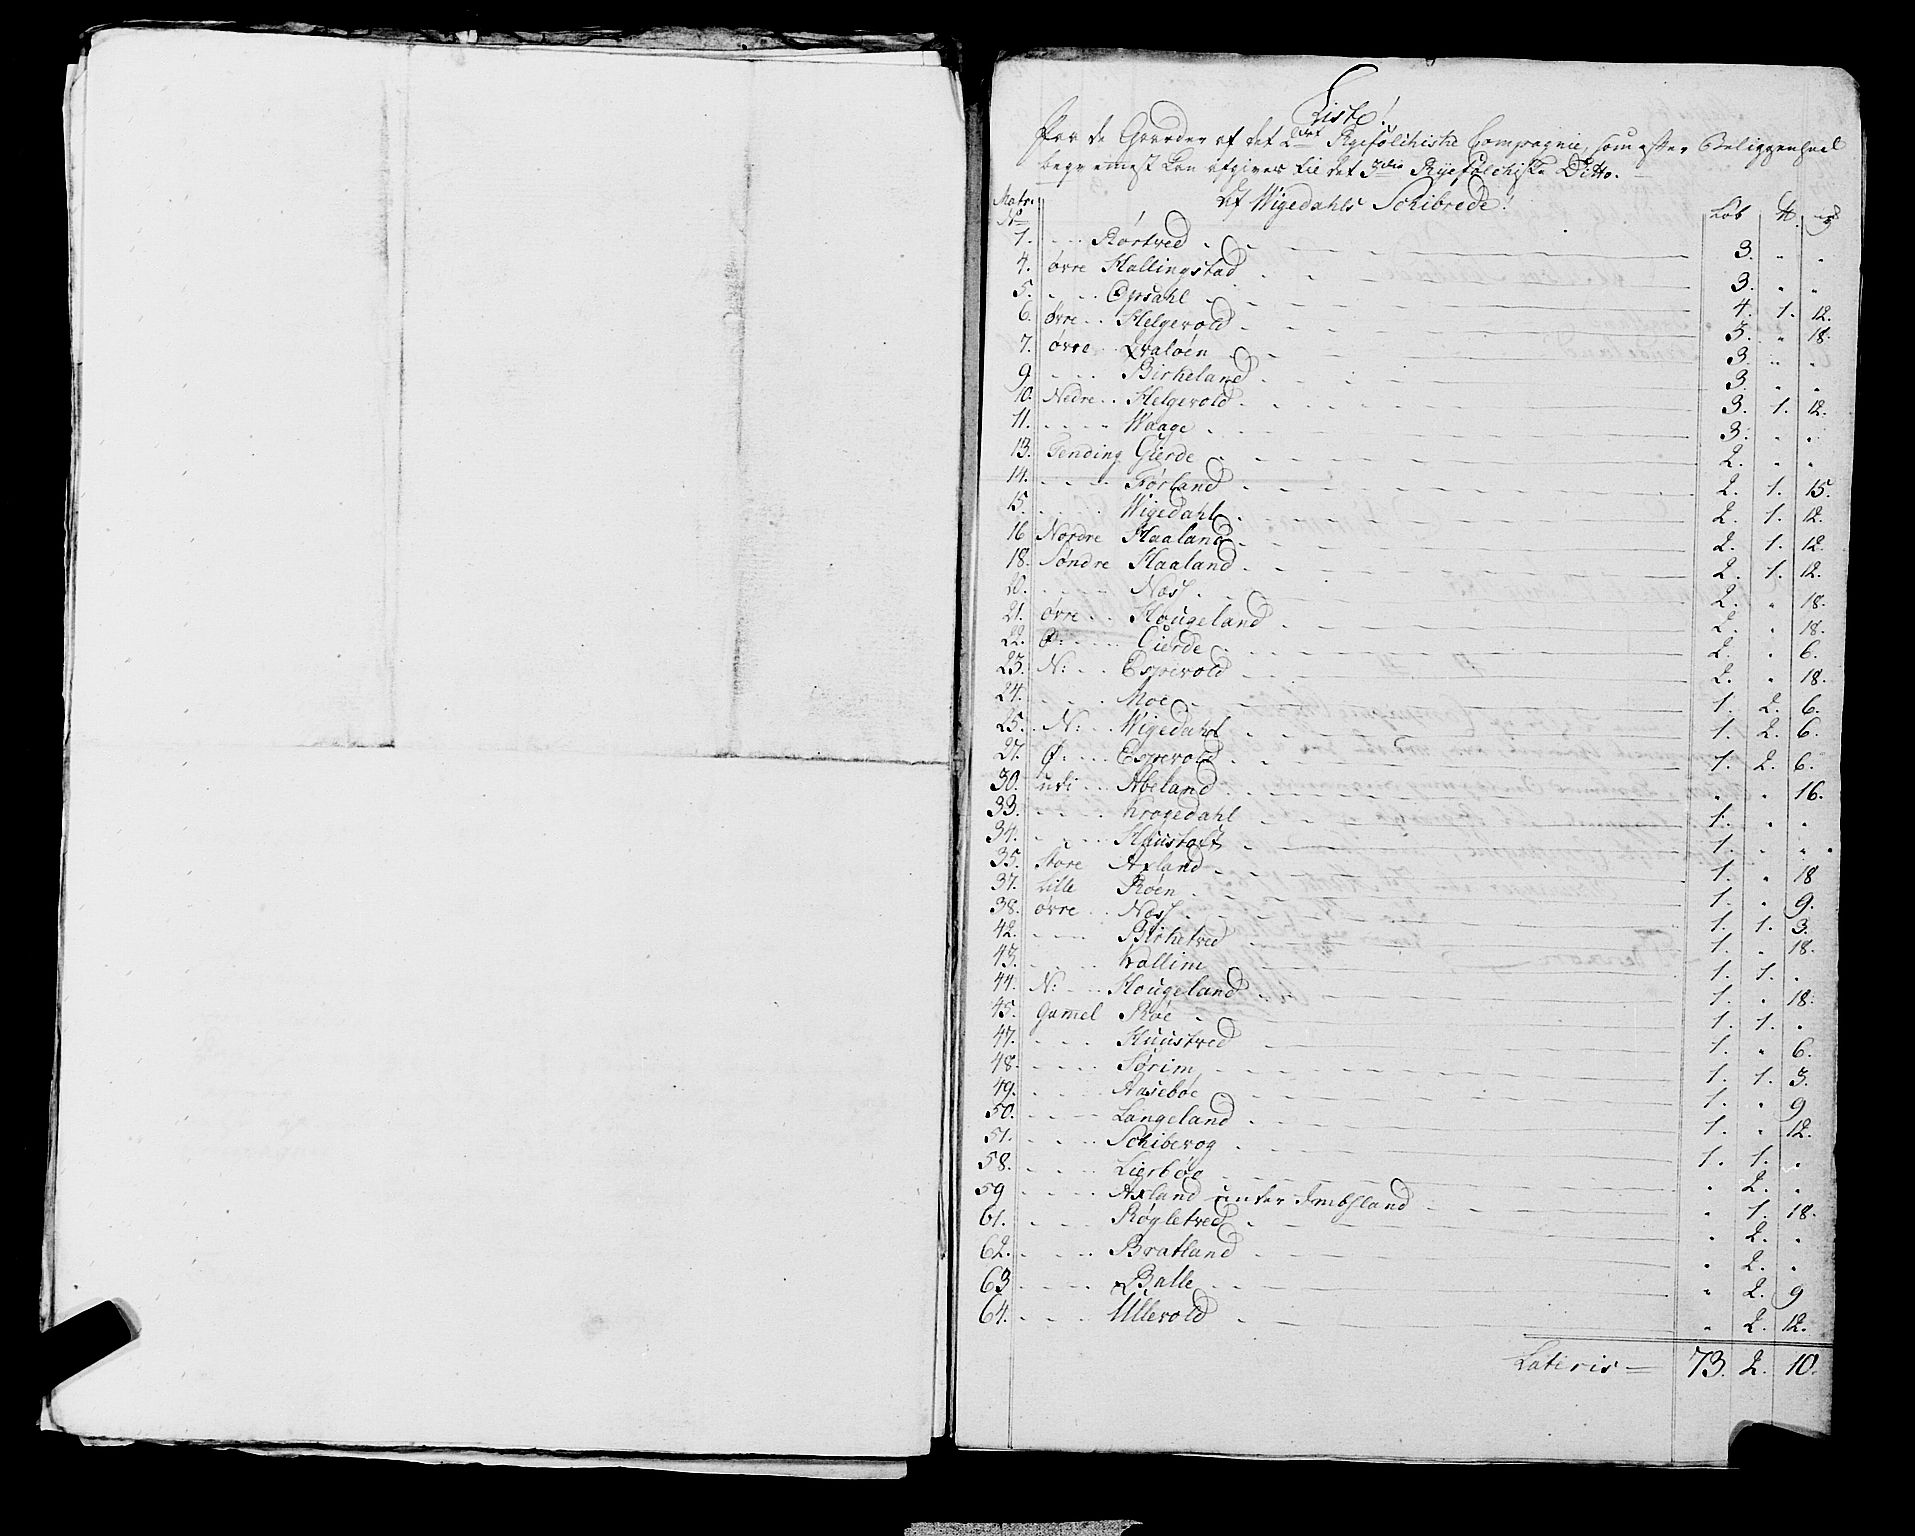 Liste!
Over de Gaarder af det 2det Ryefølchiske Compagnie, som efter Beliggenhed
beqvemest kan afgives til det 3die Ryefølchiske Ditto.
Af Wigedahls Schibrede!
Matr: No Løb ℔. mk
1. Rørtved 3. " "
4. Øvre Hallingstad 3. " "
5. Opsahl 4. 1. 12.
6. Øvre Helgevold 3. " 18.
7. Øvre Qvaløen 3. " "
9. Birkeland 3. " "
10. Nedre Helgevold 3. 1. 12.
11. Waage 3. " "
13. Tending Gierde 2. " "
14. Førland 2. 1. 15.
15. Wigedahl 2. 1. 12.
16 Nordre Haaland 2. 1. 12.
18. Søndre Haaland 2. 1. 12.
20. Næss 2. " 18.
21. Øvre Hougeland 2. " 18.
22. Ø: Gierde 2. " 6.
23. N: Espevold 2. " 18.
24. Moe 1. 2. 6.
25. N: Wigedahl 1. 2. 6.
27. Ø: Espevold 1. 2. 6.
30. udi Abeland " " 16.
33. Krogedahl 1. " "
34. Huustoft 1. " "
35. Store Axland 1. " 18
37. Lille Røen 1. " 9.
38. Øvre Næss 1. 1. 3.
42. Birketved 1. " 18.
43. Kallim 1. 1. "
44. N: Hougeland 1. " 18.
45. Gamel Røe 1. 1. "
47. Huustved 1. " 6.
48. Sørim 1. 1. 3.
49. Aasebøe 1. " 9
50. Langeland 1. " 12.
51. Schibevog 1. 1. "
58. Lierbøe " 2. "
59 Axland under Imbsland " 1. 18.
61. Røgletved " 2. "
62. Bratland " 2. "
63 Balle " 2. 9
64. Ullevold " 2. 12.
Lateris 73. 2. 10.